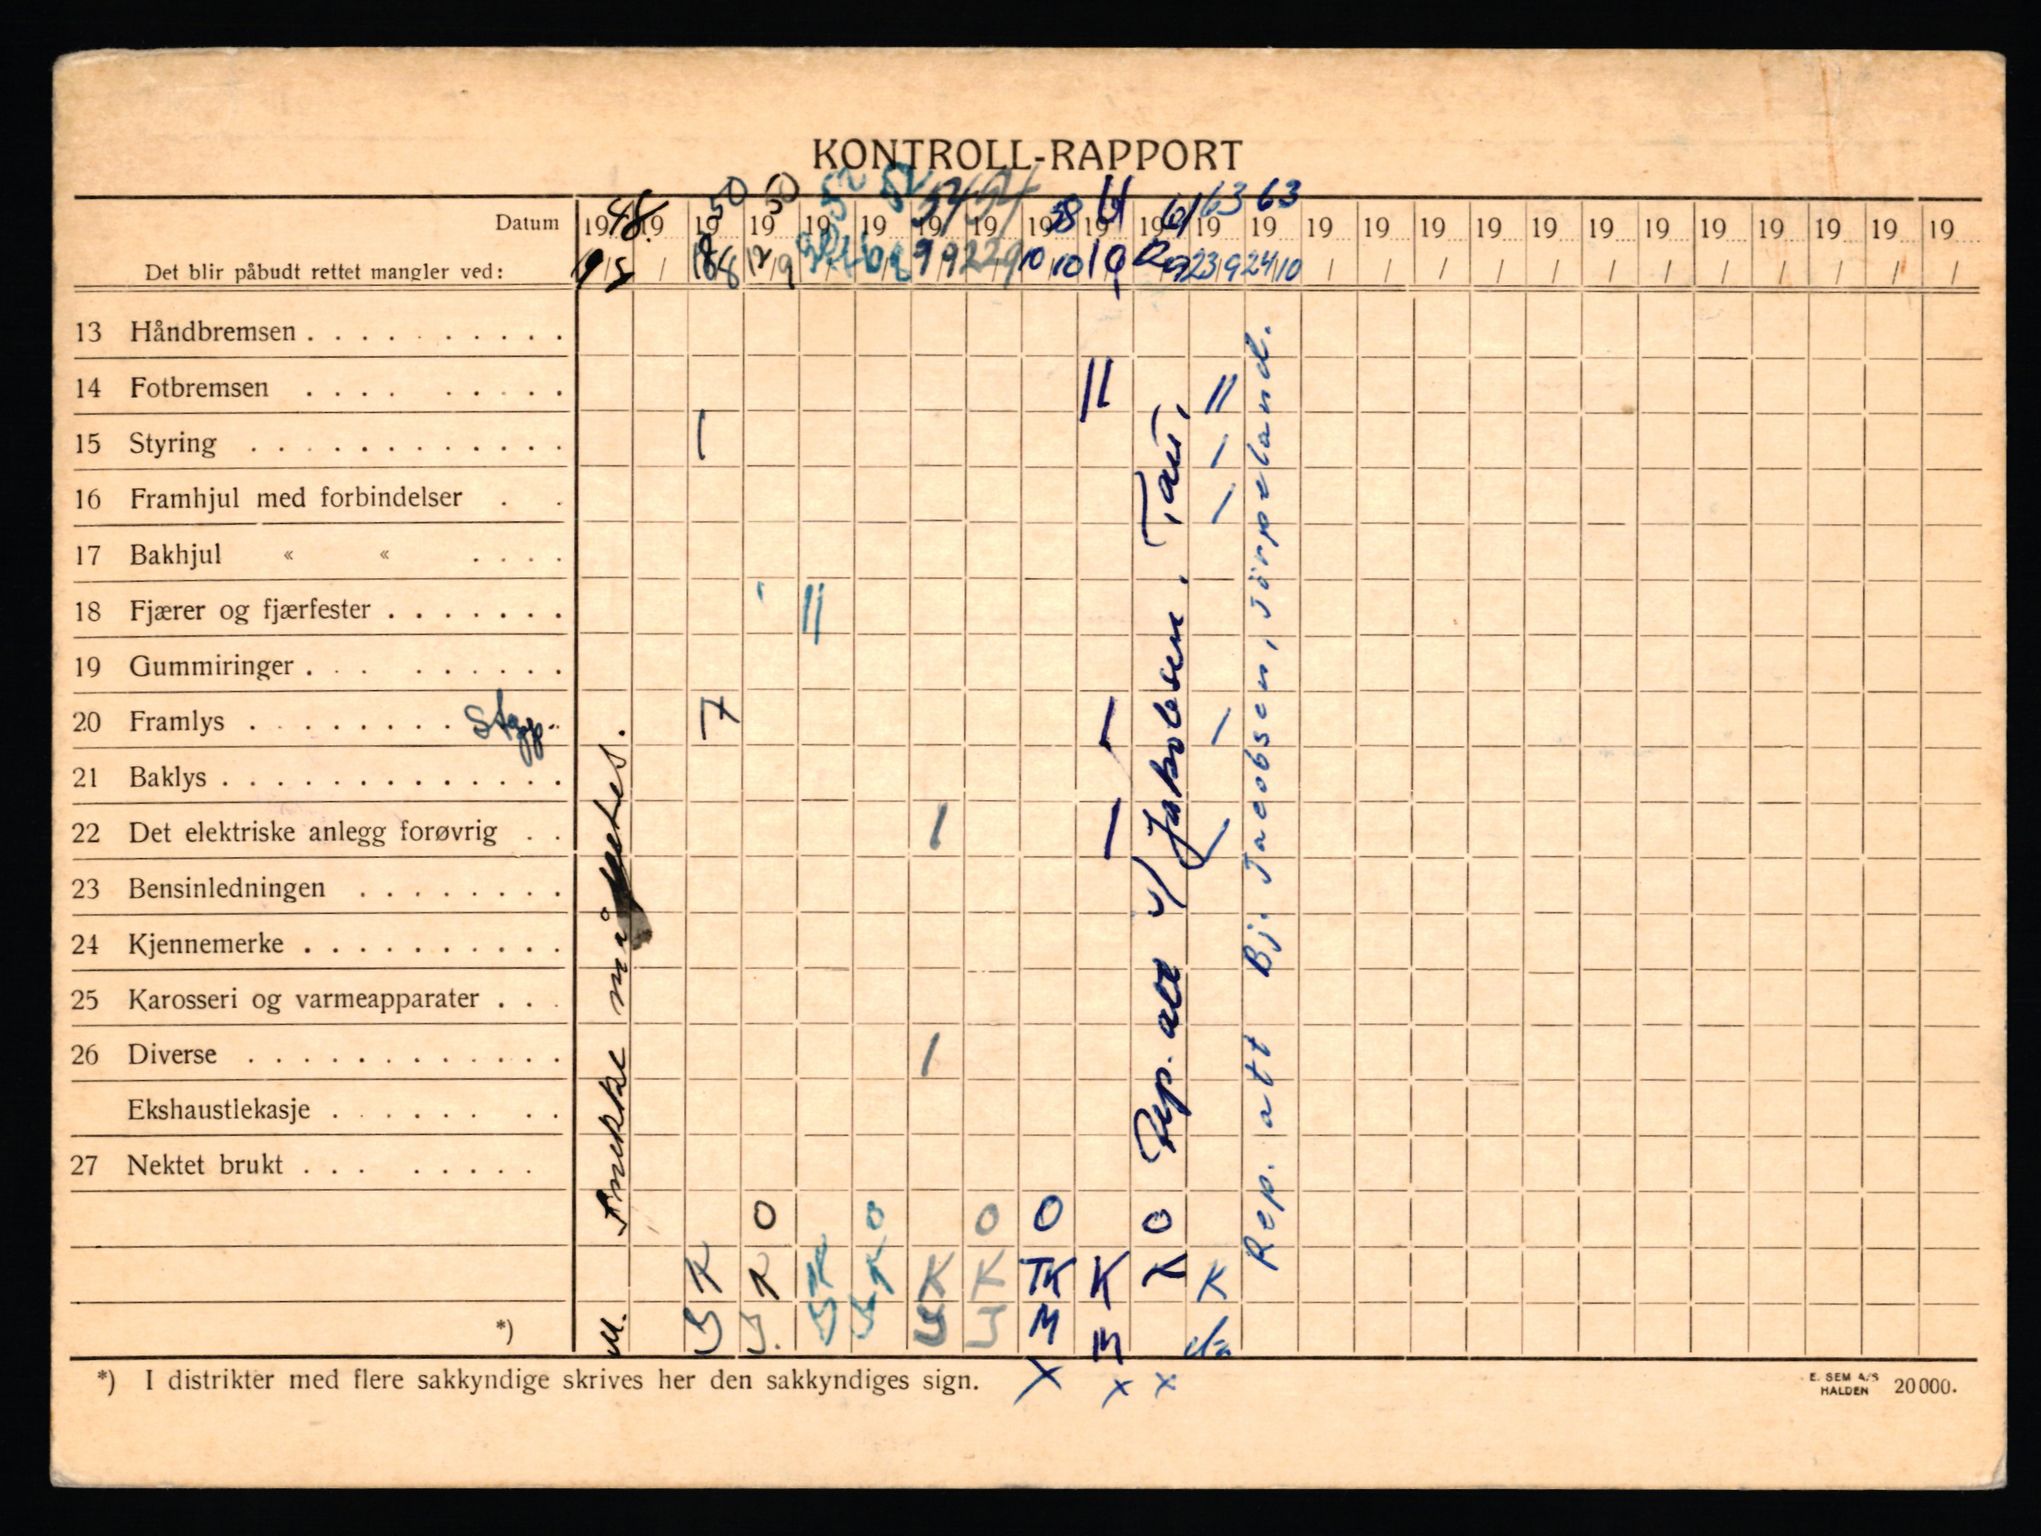 KONTROLL-RAPPORT
Datum 19 48. 19 19 50 19 50 19 52 19 52 19 54 19 54 19 58 19 61 19 61 19 63 19 63 19 19 19 19 19 19 19 19 19 19 19 19
Det blir påbudt rettet mangler ved: / / 18/8 12/9 / / 9/9 22/9 10/10 / / 23/9 24/10 / / / / / / / / / / / /
13 Håndbremsen
14 Fotbremsen || ||
15 Styring | |
16 Framhjul med forbindelser |
17 Bakhjul « «
18 Fjærer og fjærfester ||
19 Gummiringer
20 Framlys Stopp. 7 | |
21 Baklys
22 Det elektriske anlegg forøvrig | | |
23 Bensinledningen
24 Kjennemerke
25 Karosseri og varmeapparater
26 Diverse |
Ekshaustlekasje
27 Nektet brukt
O O O O O
K K K K K K TK K K K
*) M. M M
x x x
Rep. att v/ Jakobsen. Tau.
Rep. att Bj. Jacobsen, Jørpeland.
*) I distrikter med flere sakkyndige skrives her den sakkyndiges sign.
E. SEM A/S
HALDEN 20000.